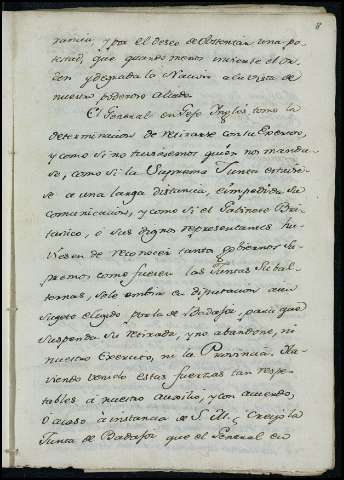 8
rancia, y por el deseo de obstentar una po-
testad, que quando menos invierte el or-
den y degrada la Nacion a la vista de
nuestro poderoso aliado.
El General en Gefe Ynglés tomó la
determinacion de retirarse con su Exercito,
y como si no tuviesemos quien nos manda-
se, como si la Suprema Junta estuvie-
se a una larga distancia, é impedida su
comunicacion, y como si el Gabinete Bri-
tanico, ó sus dignos representantes hu-
viesen de reconocer tantos gobiernos Su-
premos como fueren las Juntas Subal-
ternas, Sole embia en diputacion a un
sugeto elegido por la de Badajoz, para que
suspenda su retirada, y no abandone, ni
nuestro Exercito, ni la Provincia. Ha-
viendo venido estas fuerzas tan respe-
tables a nuestro auxilio, y con acuerdo,
ó acaso à instancia de S. M. ¿Creyó la
Junta de Badajoz que el General en